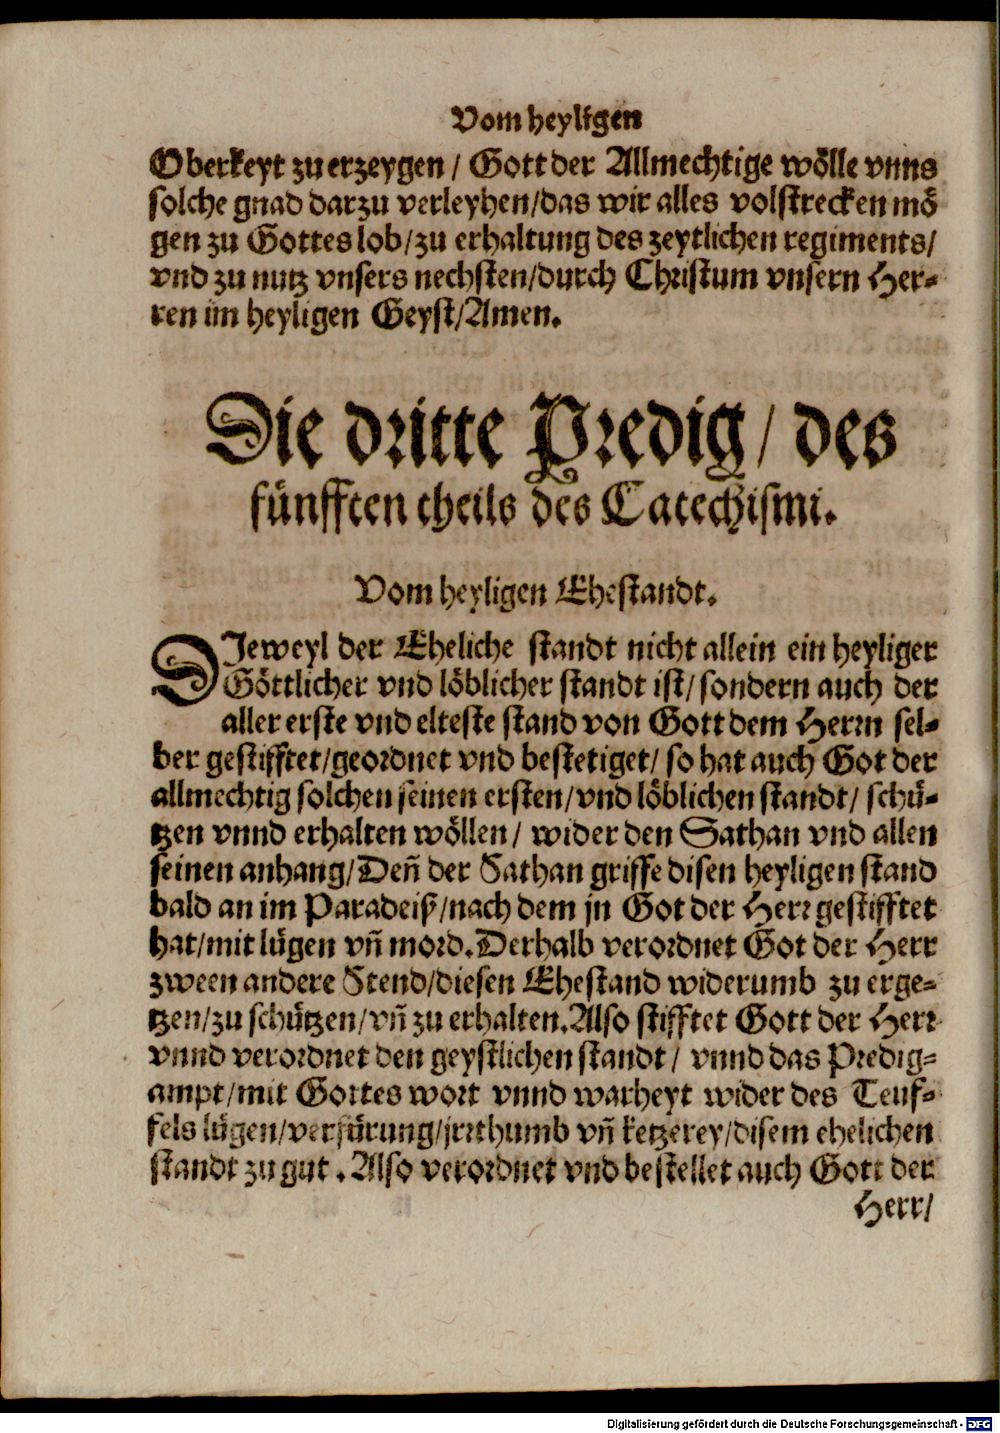 Vom heyligen
Oberkeyt zu erzeygen / Gott der Allmechtige wölle vnns
solche gnad darzu verleyhen/das wir alles volstrecken mö
gen zu Gottes lob/zu erhaltung des zeytlichen regiments/
vnd zu nutz vnsers nechsten/durch Christum vnsern Her-
ren im heyligen Geyst/Amen.
Die dritte Predig/ des
fünfften theils des Catechismi.
Vom heyligen Ehestandt.
DIeweyl der Eheliche standt nicht allein ein heyliger
Göttlicher vnd löblicher standt ist/ sondern auch der
aller erste vnd elteste stand von Gott dem Herrn sel-
ber gestifftet/geordnet vnd bestetiget/ so hat auch Got der
allmechtig solchen seinen ersten/vnd löblichen standt/ schü-
tzen vnnd erhalten wöllen/ wider den Sathan vnd allen
seinen anhang/Deñ der Sathan griffe disen heyligen stand
bald an im Paradeiß/nach dem jn Got der Herr gestifftet
hat/mit lügen vñ mord. Derhalb verordnet Got der Herr
zween andere Stend/diesen Ehestand widerumb zu erge-
tzen/zu schützen/vñ zu erhalten. Also stifftet Gott der Herr
vnnd verordnet den geystlichen standt/ vnnd das Predig-
ampt/mit Gottes wort vnnd warheyt wider des Teuf-
fels lügen/verfürung/jrrthumb vñ ketzerey/disem ehelichen
standt zu gut. Also verordnet vnd bestellet auch Gott der
Herr/
Digitalisierung gefördert durch die Deutsche Forschungsgemeinschaft - DFG